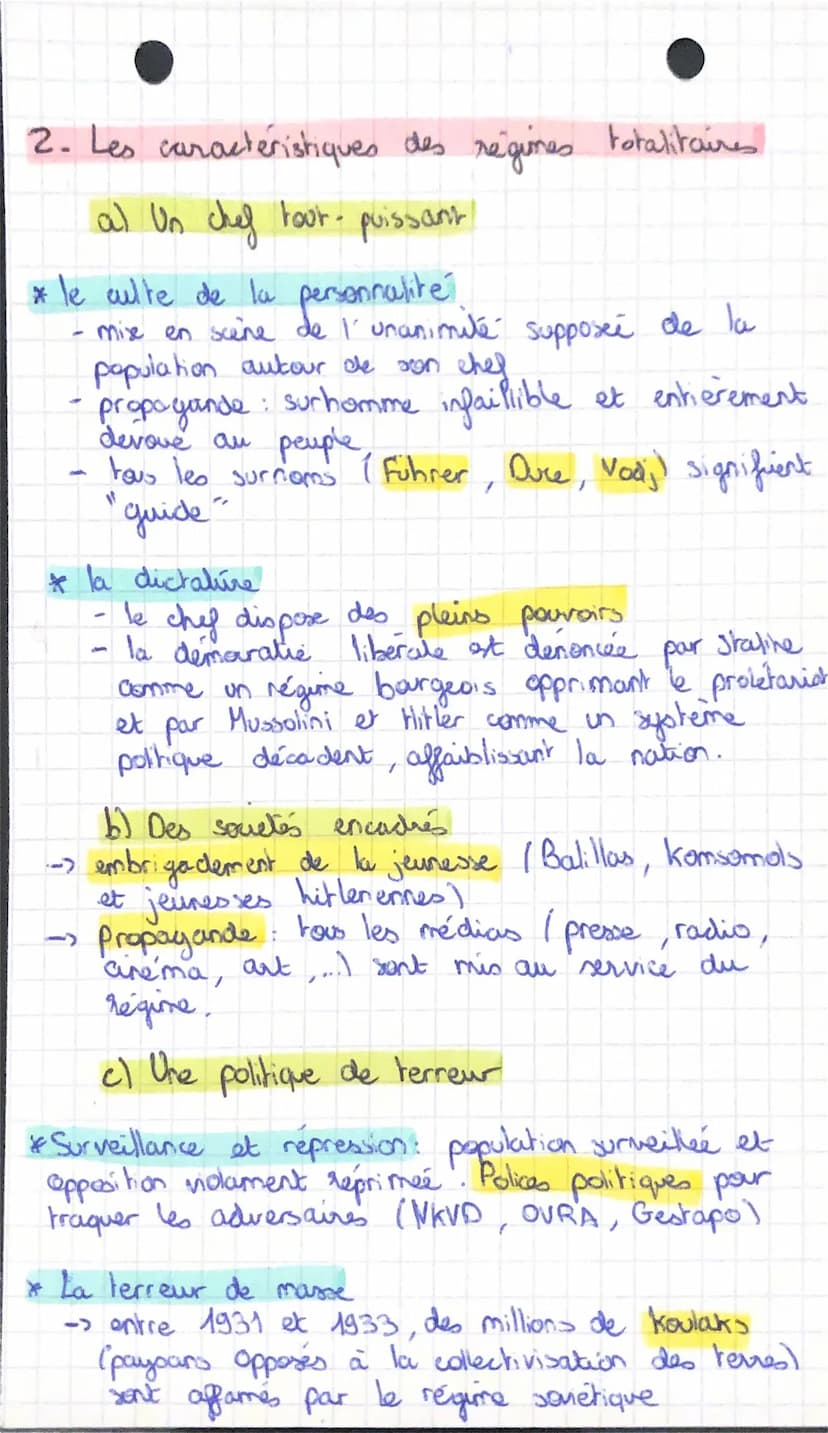 2- Les caractéristiques des régimes totalitaires
a) Un chef tout-puissant
* le culte de la personnalité
- mise en scène de l'unanimité supposée de la
population autour de son chef
- propagande : surhomme infaillible et entièrement
dévoué au peuple
- tous les surnoms (Führer, Duce, Vodj) signifient
"guide"
* la dictature
- le chef dispose des pleins pouvoirs
- la démocratie libérale est dénoncée par Staline
comme un régime bourgeois opprimant le prolétariat
et par Mussolini et Hitler comme un système
politique décadent, affaiblissant la nation.
b) Des sociétés encadrés
-> embrigadement de la jeunesse (Balillas, Komsomols
et jeunesses hitleriennes)
-> Propagande : tous les médias (presse, radio,
cinéma, art, ...) sont mis au service du
régime.
c) Une politique de terreur
* Surveillance et répression : population surveillée et
opposition violament réprimée. Polices politiques pour
traquer les adversaires (NKVD, OVRA, Gestapo)
* La terreur de masse
-> entre 1931 et 1933, des millions de Koulaks
(paysans opposés à la collectivisation des terres)
sont affamés par le régime soviétique